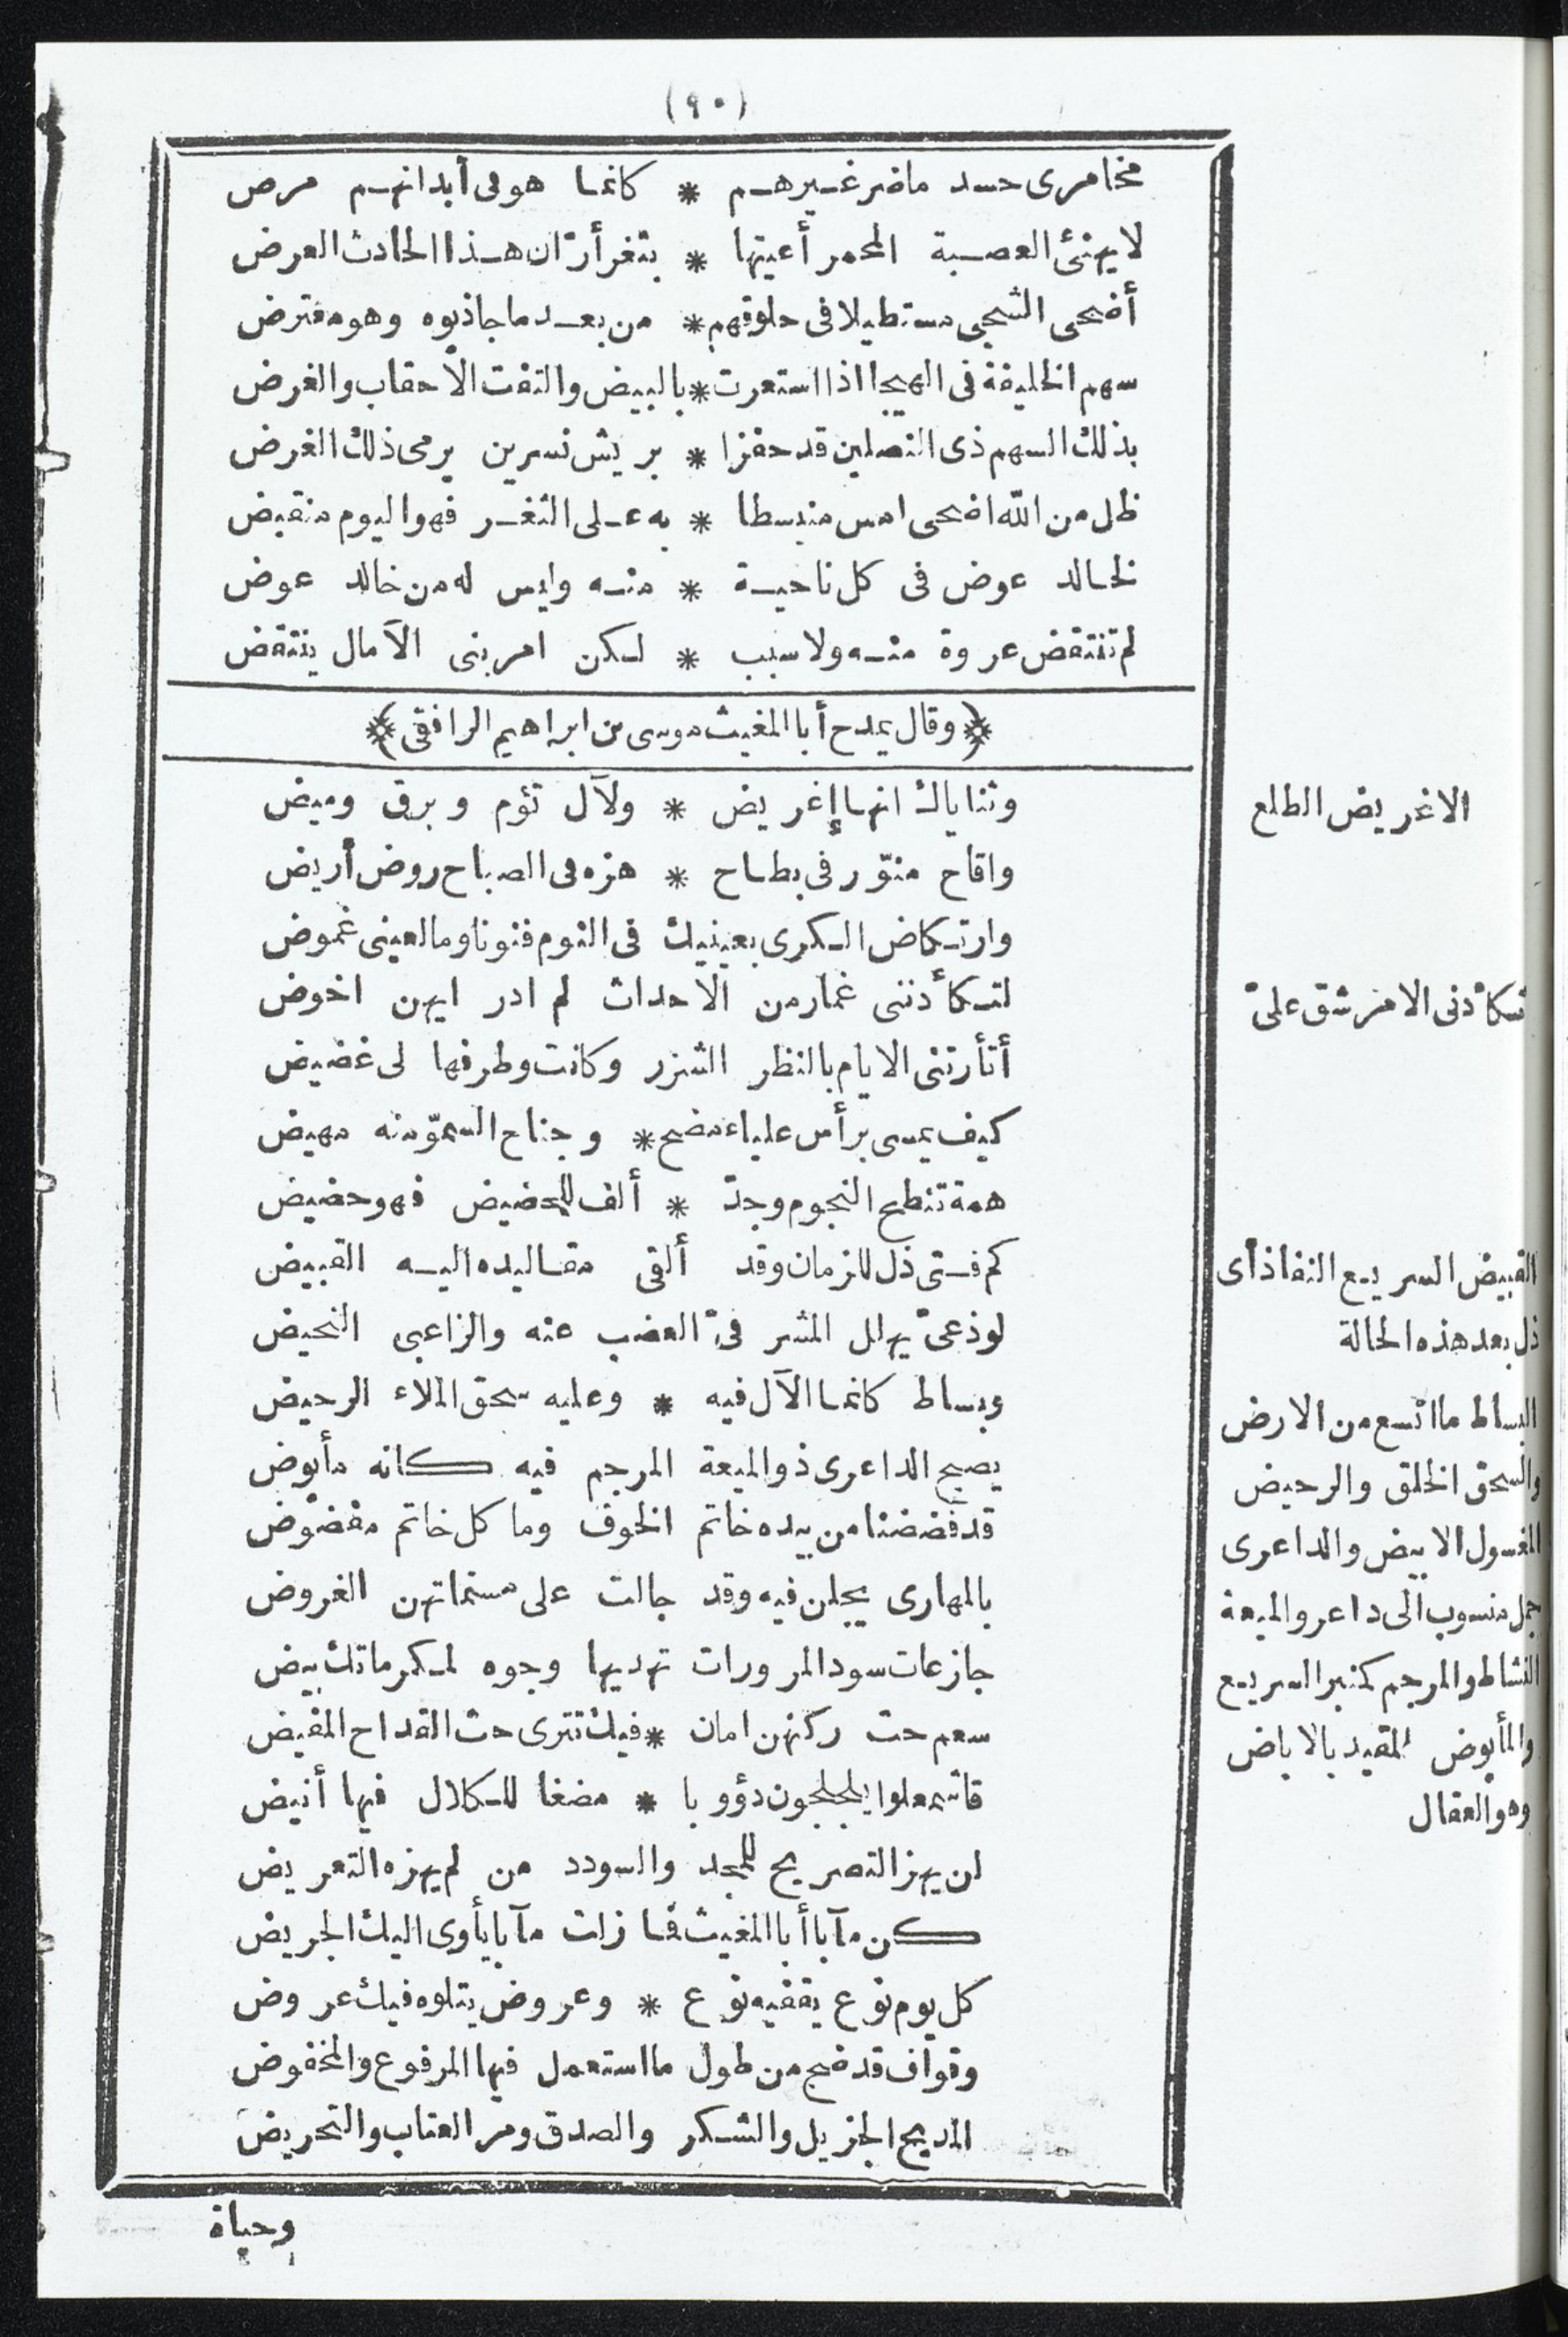 (٩٠)
مخامرى حسد ماضر غيرهم * كانما هو فى أبدانهم مرض
لا يهنئ العصبة المحمر أعينها * بثغر أرّان هذا الحادث العرض
أضحى الشجى مستطيلا فى حلوقهم * من بعد ما جاذبوه وهو مفترض
سهم الخليفة فى الهيجا اذا استعرت * بالبيض والتفت الأحقاب والغرض
بذلك السهم ذى النصلين قد حفزا * بريش نسرين يرمى ذلك الغرض
ظل من الله اضحى امس منبسطا * به على الثغر فهو اليوم منقبض
لخالد عوض فى كل ناحية * منه وليس له من خالد عوض
لم تنتقض عروة منه ولا سبب * لكن امر بنى الآمال ينتقض
﴿وقال يمدح أبا المغيث موسى بن ابراهيم الرافقى﴾
وثناياك انها إغريض * ولآل تؤم وبرق وميض
واقاح منوّر فى بطاح * هزه فى الصباح روض أريض
وارتكاض الكرى بعينيك فى النوم فنونا وما لعينى غموض
لتكأدننى غمار من الاحداث لم ادر ايهن اخوض
أتأرتنى الايام بالنظر الشزر وكانت وطرفها لى غضيض
كيف يمسى برأس علياء مضح * وجناح السموّ منه مهيض
همة تنطح النجوم وجدّ * ألف للحضيض فهو حضيض
كم فتى ذل للزمان وقد ألقى مقاليده اليه القبيض
لوذعىّ يهلل المشرفىّ العضب عنه والزاعبى النحيض
وبساط كانما الآل فيه * وعليه سحق الملاء الرحيض
يصبح الداعرى ذو الميعة المرجم فيه كانه مأبوض
قد فضضنا من بيده خاتم الخوف وما كل خاتم مفضوض
بالمهارى يجلن فيه وقد جالت على مسنماتهن الغروض
جازعات سود المرورات تهديها وجوه لمكرماتك بيض
سعم حث ركنهن امان * فيك تترى حث القداح المفيض
فاشمعلوا يلجلجون دؤوبا * مضغا للكلال فيها أنيض
لن يهز التصريح للمجد والسودد من لم يهزه التعريض
كن مآبا أبا المغيث فما زلت مآبا يأوى اليك الجريض
كل يوم نوع يقفيه نوع * وعروض يتلوه فيك عروض
وقواف قد ضج من طول ما استعمل فيها المرفوع والمخفوض
المديح الجزيل والشكر والصدق ومر العتاب والتحريض
وحياة
الاغريض الطلع
تكأدنى الامر شق علىّ
القبيض السريع النفاذ أى
ذل بعد هذه الحالة
البساط ما اتسع من الارض
والسحق الخلق والرحيض
المغسول الابيض والداعرى
جمل منسوب الى داعر والميعة
النشاط والمرجم كمنبر السريع
والمأبوض المقيد بالاباض
وهو العقال